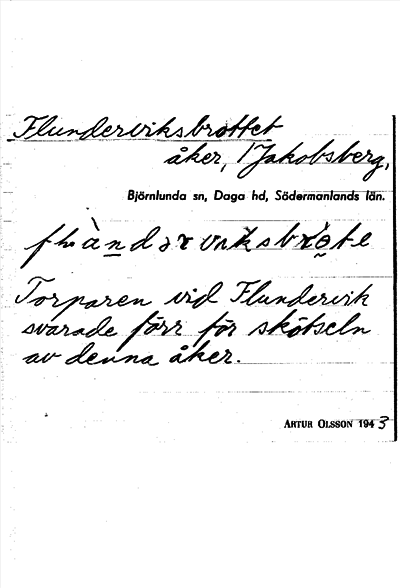 Flunderviksbrottet
åker, / Jakobsberg,
Björnlunda sn, Daga hd, Södermanlands län.
Torparen vid Flundervik
svarade förr för skötseln
av denna åker.
ARTUR OLSSON 1943